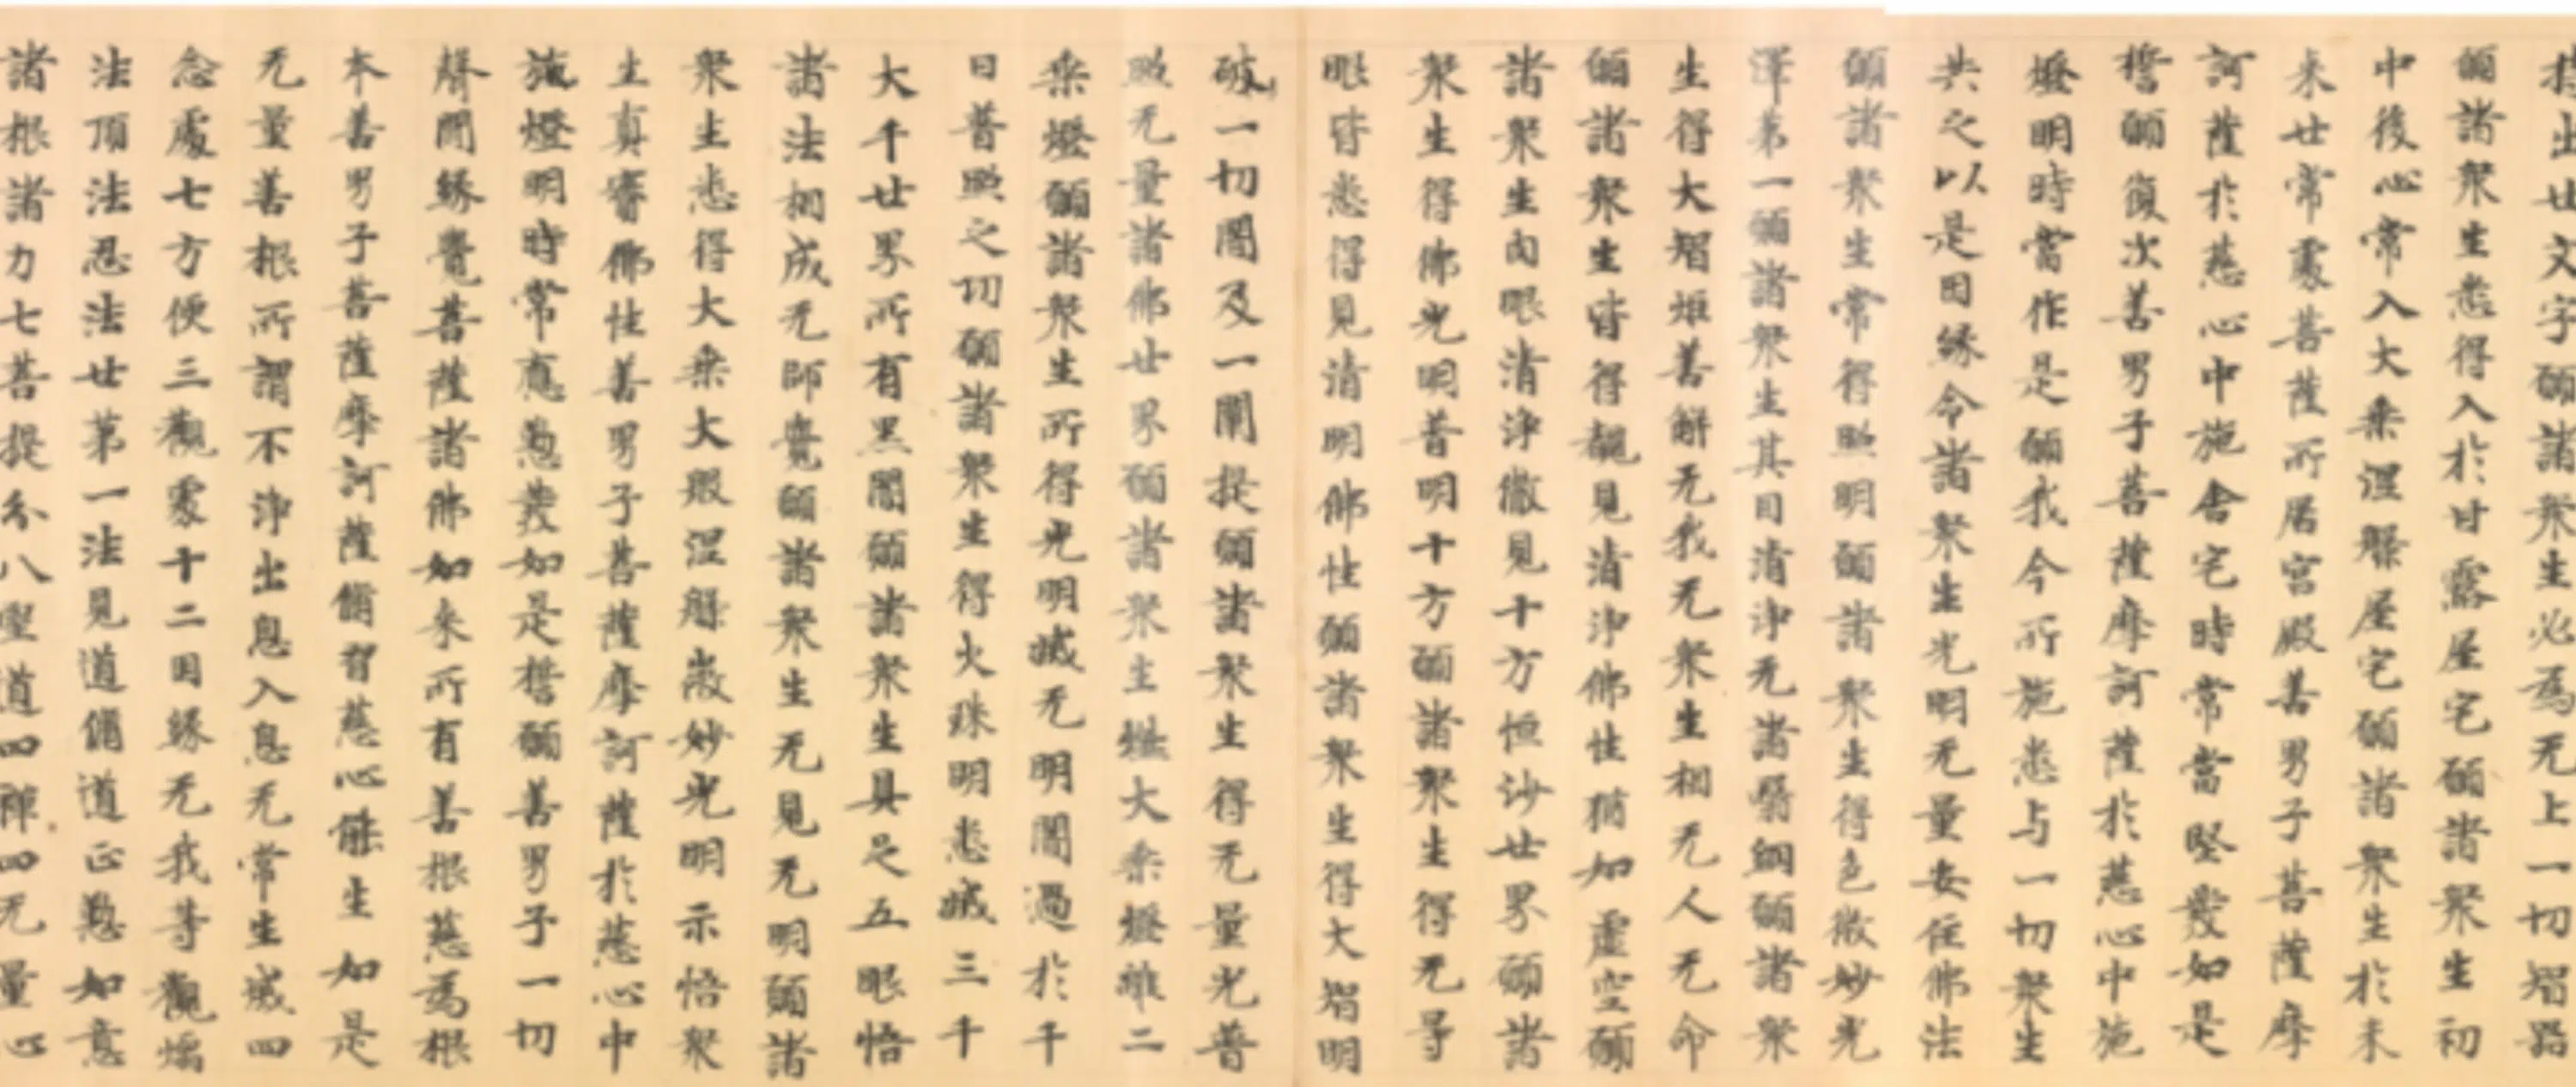 提出世文字願諸眾生必爲无上一切智器
願諸眾生悉得入於甘露屋宅願諸眾生初
中後心常入大乘涅槃屋宅願諸眾生於未
來世常處菩薩所居宮殿善男子菩薩摩
訶薩於慈心中施舍宅時常當堅發如是
誓願復次善男子菩薩摩訶薩於慈心中施
燈明時當作是願我今所施悉与一切眾生
共之以是因緣令諸眾生光明无量安住佛法
願諸眾生常得照明願諸眾生得色微妙光
澤第一願諸眾生其目清淨无諸翳網願諸眾
生得大智炬善解无我无眾生相无人无命
願諸眾生皆得覩見清淨佛性猶如虛空願
諸眾生肉眼清淨徹見十方恒沙世界願諸
眾生得佛光明普明十方願諸眾生得无㝵
眼皆悉得見清明佛性願諸眾生得大智明
破一切闇及一闡提願諸眾生得无量光普
照无量諸佛世界願諸眾生燃大乘燈離二
乘燈願諸眾生所得光明滅无明闇過於千
日普照之功願諸眾生得火珠明悉滅三千
大千世界所有黑闇願諸眾生具足五眼悟
諸法相成无師覺願諸眾生无見无明願諸
眾生悉得大乘大般涅槃微妙光明示悟眾
生真實佛性善男子菩薩摩訶薩於慈心中
施燈明時常應懃發如是誓願善男子一切
聲聞緣覺菩薩諸佛如來所有善根慈爲根
本善男子菩薩摩訶薩脩習慈心能生如是
无量善根所謂不淨出息入息无常生滅四
念處七方便三觀處十二因緣无我等觀煗
法頂法忍法世第一法見道脩道正懃如意
諸根諸力七菩提分八聖道四禪四无量心